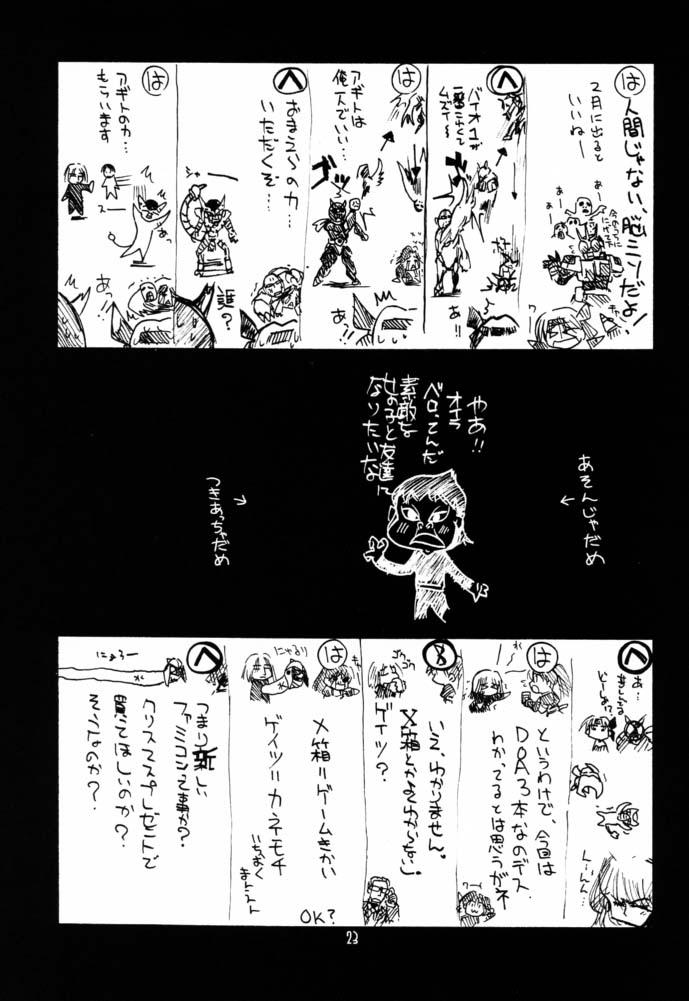 は
人間じゃない、脳ミソだよ!
2月に出ると
いいねー
あー
あー
ワ
キャ
へ
バイオ1が
一番こわくて
ムズイ〜
あ!!
は
アギトは
俺一人でいい…
ブッ
あっ!!
へ
おまえらの力…
いただくぞ…
誰?
は
アギトの力…
もらいます
スー
あっ
あっ!
やあ!!
オイラ
ベロってんだ
素敵な
女の子と友達に
なりたいな
あそんじゃだめ
←
つきあっちゃだめ
→
へ
あ…
くんん…
は
というわけで、今回は
DOA3本なのデス
わかってるとは思うがネ
ワー
いえ、わかりません。
X箱とかよくわかんない」。
ゲイツ?
は
にゃるり
X箱=ゲームきかい
ゲイツ=カネモチ
いちおく
OK?
へ
にょろー
つまり新しい
ファミコンって事か?
クリスマスプレゼントで
買ってほしいのか?
そうなのか?
23